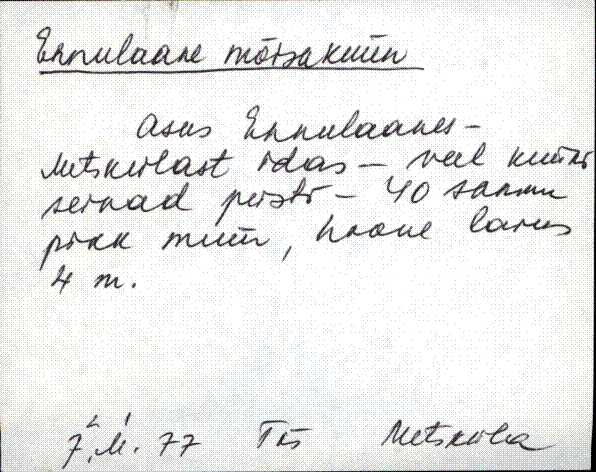 Ennulaane mõisaküün
Asus Ennulaanes –
Metskülast idas – veel küüni
seinad püsti – 40 sammu
pikk müür, hoone laius
4 m.
77 Metsküla